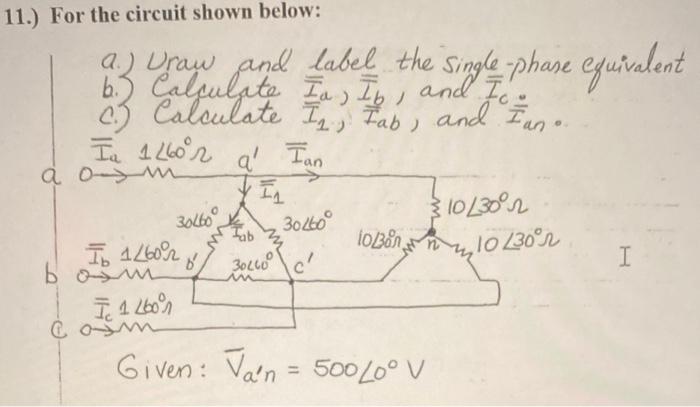 11.) For the circuit shown below:
a.) Draw and label the single-phase equivalent
b.) Calculate I̅a, I̅b, and I̅c.
c.) Calculate I̅1, I̅ab, and I̅an.
I̅a 1∠60°Ω a' I̅an
a
I̅1
10∠30°Ω
30∠60° I̅ab 30∠60°
10∠30°Ω n 10∠30°Ω
I̅b 1∠60°Ω b' 30∠60° c'
b
I̅c 1∠60°Ω
c
Given: V̅a'n = 500∠0° V